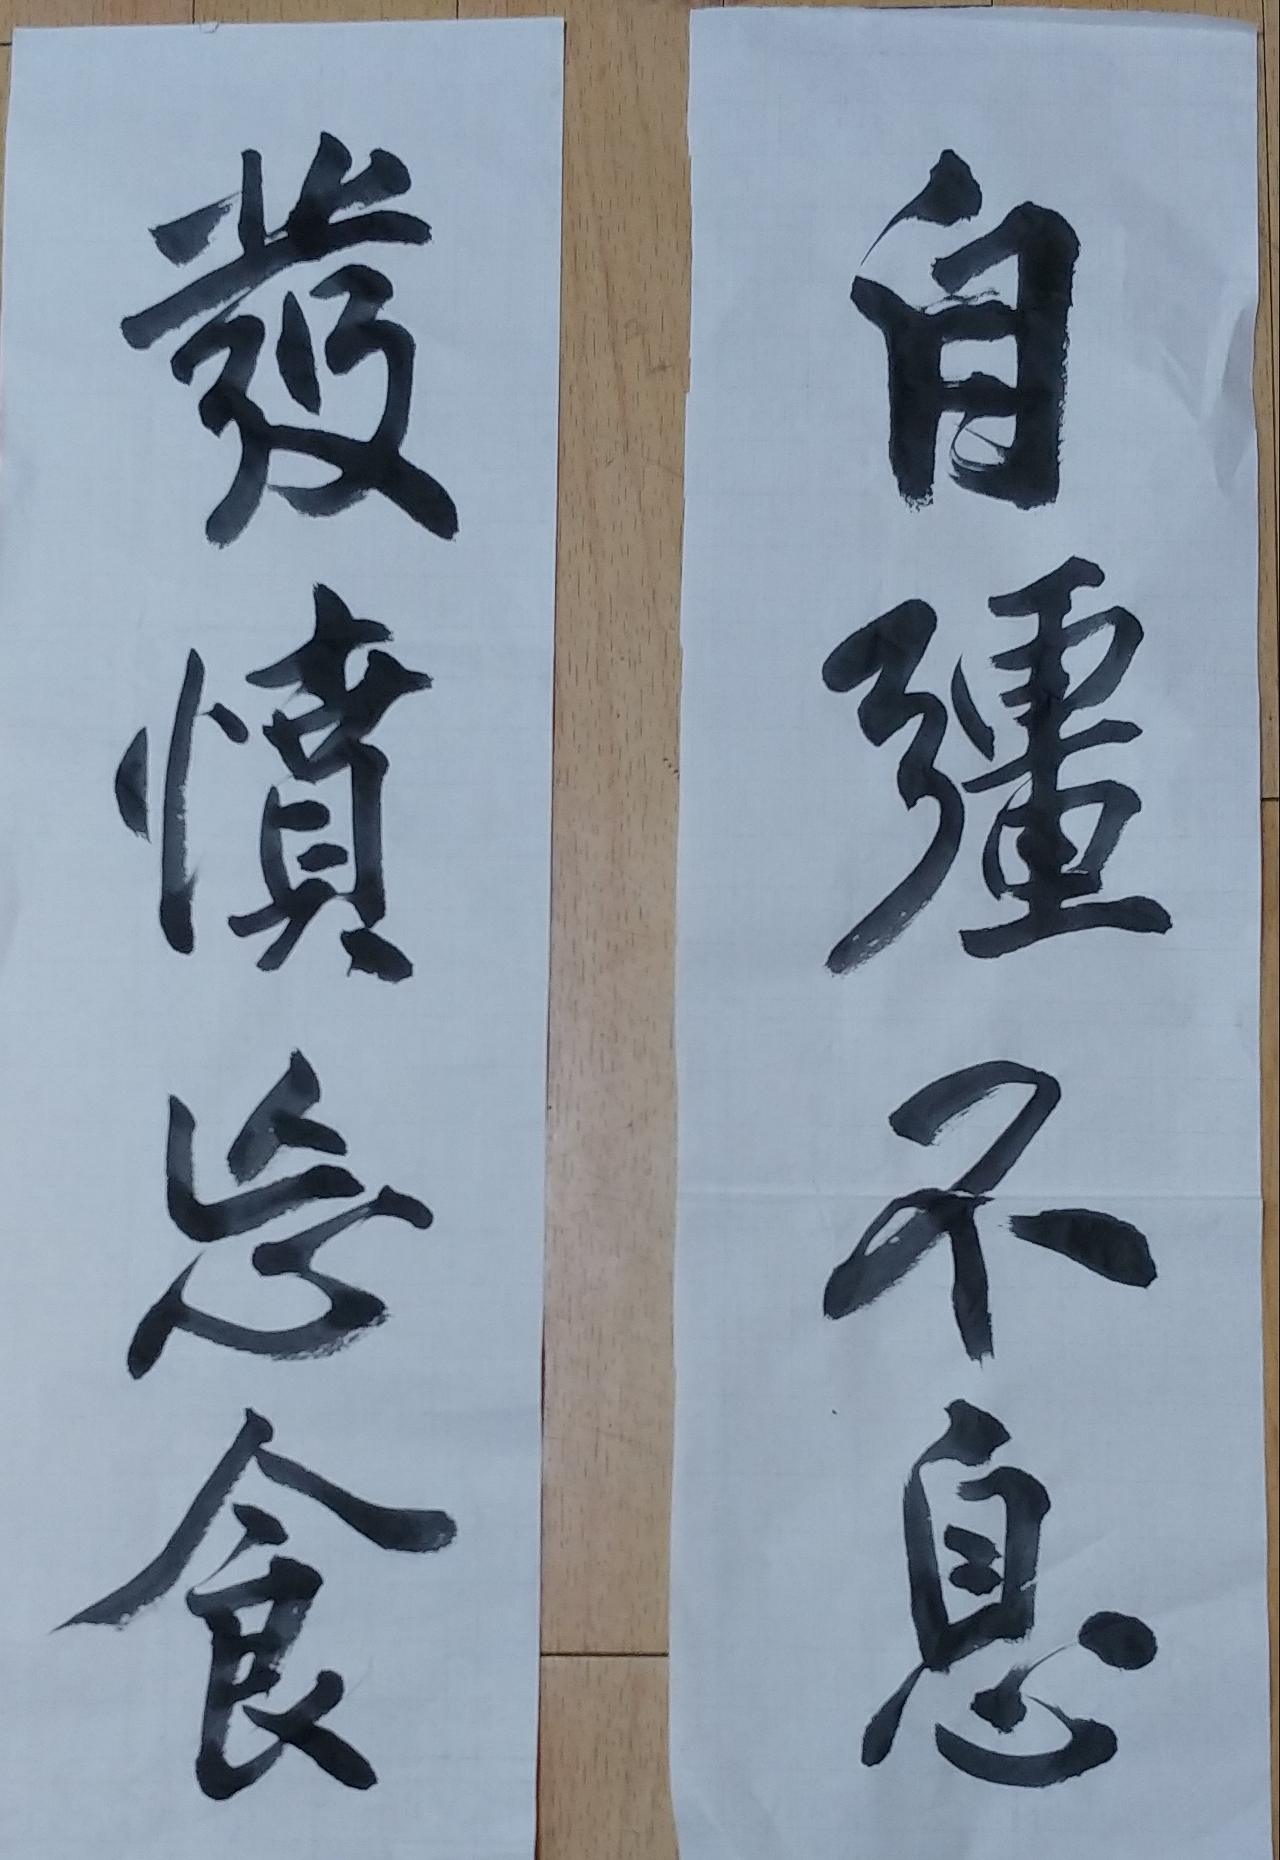 自彊不息
發憤忘食